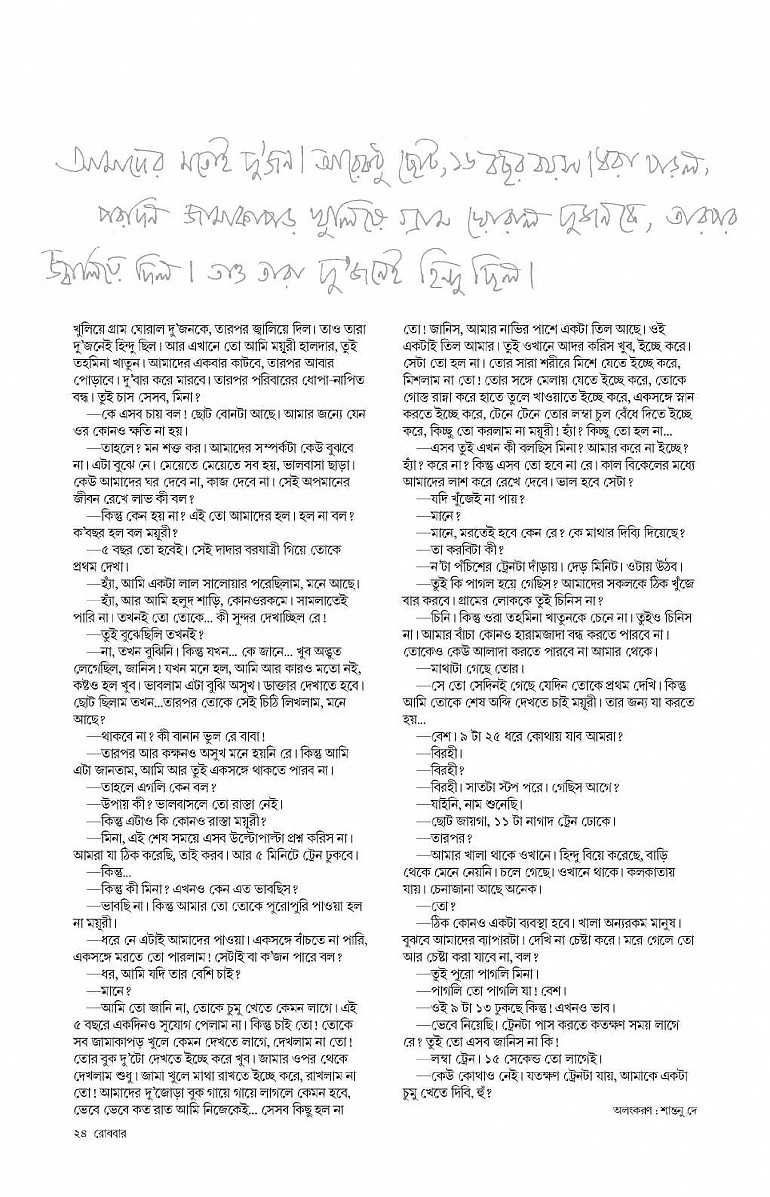 আমাদের মতোই দু'জন। আরেকটু ছোট, ১৬ বছর বয়স। ধরা পড়ল,
পরদিন জামাকাপড় খুলিয়ে গ্রাম ঘোরাল দু'জনকে, তারপর
জ্বালিয়ে দিল। তাও তারা দু'জনেই হিন্দু ছিল।
খুলিয়ে গ্রাম ঘোরাল দু'জনকে, তারপর জ্বালিয়ে দিল। তাও তারা
দু'জনেই হিন্দু ছিল। আর এখানে তো আমি ময়ূরী হালদার, তুই
তহমিনা খাতুন। আমাদের একবার কাটবে, তারপর আবার
পোড়াবে। দু'বার করে মারবে। তারপর পরিবারের ধোপা-নাপিত
বন্ধ। তুই চাস সেসব, মিনা?
—কে এসব চায় বল! ছোট বোনটা আছে। আমার জন্যে যেন
ওর কোনও ক্ষতি না হয়।
—তাহলে? মন শক্ত কর। আমাদের সম্পর্কটা কেউ বুঝবে
না। এটা বুঝে নে। মেয়েতে মেয়েতে সব হয়, ভালবাসা ছাড়া।
কেউ আমাদের ঘর দেবে না, কাজ দেবে না। সেই অপমানের
জীবন রেখে লাভ কী বল?
—কিন্তু কেন হয় না? এই তো আমাদের হল। হল না বল?
ক'বছর হল বল ময়ূরী?
—৫ বছর তো হবেই। সেই দাদার বরযাত্রী গিয়ে তোকে
প্রথম দেখা।
—হ্যাঁ, আমি একটা লাল সালোয়ার পরেছিলাম, মনে আছে।
—হ্যাঁ, আর আমি হলুদ শাড়ি, কোনওরকমে। সামলাতেই
পারি না। তখনই তো তোকে... কী সুন্দর দেখাচ্ছিল রে!
—তুই বুঝেছিলি তখনই?
—না, তখন বুঝিনি। কিন্তু যখন... কে জানে... খুব অদ্ভুত
লেগেছিল, জানিস! যখন মনে হল, আমি আর কারও মতো নই,
কষ্টও হল খুব। ভাবলাম এটা বুঝি অসুখ। ডাক্তার দেখাতে হবে।
ছোট ছিলাম তখন...তারপর তোকে সেই চিঠি লিখলাম, মনে
আছে?
—থাকবে না? কী বানান ভুল রে বাবা!
—তারপর আর কক্ষনও অসুখ মনে হয়নি রে। কিন্তু আমি
এটা জানতাম, আমি আর তুই একসঙ্গে থাকতে পারব না।
—তাহলে এগলি কেন বল?
—উপায় কী? ভালবাসলে তো রাস্তা নেই।
—কিন্তু এটাও কি কোনও রাস্তা ময়ূরী?
—মিনা, এই শেষ সময়ে এসব উল্টোপাল্টা প্রশ্ন করিস না।
আমরা যা ঠিক করেছি, তাই করব। আর ৫ মিনিটে ট্রেন ঢুকবে।
—কিন্তু...
—কিন্তু কী মিনা? এখনও কেন এত ভাবছিস?
—ভাবছি না। কিন্তু আমার তো তোকে পুরোপুরি পাওয়া হল
না ময়ূরী।
—ধরে নে এটাই আমাদের পাওয়া। একসঙ্গে বাঁচতে না পারি,
একসঙ্গে মরতে তো পারলাম! সেটাই বা ক'জন পারে বল?
—ধর, আমি যদি তার বেশি চাই?
—মানে?
—আমি তো জানি না, তোকে চুমু খেতে কেমন লাগে। এই
৫ বছরে একদিনও সুযোগ পেলাম না। কিন্তু চাই তো! তোকে
সব জামাকাপড় খুলে কেমন দেখতে লাগে, দেখলাম না তো!
তোর বুক দু'টো দেখতে ইচ্ছে করে খুব। জামার ওপর থেকে
দেখলাম শুধু। জামা খুলে মাথা রাখতে ইচ্ছে করে, রাখলাম না
তো! আমাদের দু'জোড়া বুক গায়ে গায়ে লাগলে কেমন হবে,
ভেবে ভেবে কত রাত আমি নিজেকেই... সেসব কিছু হল না
২৪ রোববার
তো! জানিস, আমার নাভির পাশে একটা তিল আছে। ওই
একটাই তিল আমার। তুই ওখানে আদর করিস খুব, ইচ্ছে করে।
সেটা তো হল না। তোর সারা শরীরে মিশে যেতে ইচ্ছে করে,
মিশলাম না তো! তোর সঙ্গে মেলায় যেতে ইচ্ছে করে, তোকে
গোস্ত রান্না করে হাতে তুলে খাওয়াতে ইচ্ছে করে, একসঙ্গে স্নান
করতে ইচ্ছে করে, টেনে টেনে তোর লম্বা চুল বেঁধে দিতে ইচ্ছে
করে, কিচ্ছু তো করলাম না ময়ূরী! হ্যাঁ? কিচ্ছু তো হল না...
—এসব তুই এখন কী বলছিস মিনা? আমার করে না ইচ্ছে?
হ্যাঁ? করে না? কিন্তু এসব তো হবে না রে। কাল বিকেলের মধ্যে
আমাদের লাশ করে রেখে দেবে। ভাল হবে সেটা?
—যদি খুঁজেই না পায়?
—মানে?
—মানে, মরতেই হবে কেন রে? কে মাথার দিব্যি দিয়েছে?
—তা করবিটা কী?
—ন'টা পঁচিশের ট্রেনটা দাঁড়ায়। দেড় মিনিট। ওটায় উঠব।
—তুই কি পাগল হয়ে গেছিস? আমাদের সকলকে ঠিক খুঁজে
বার করবে। গ্রামের লোককে তুই চিনিস না?
—চিনি। কিন্তু ওরা তহমিনা খাতুনকে চেনে না। তুইও চিনিস
না। আমার বাঁচা কোনও হারামজাদা বন্ধ করতে পারবে না।
তোকেও কেউ আলাদা করতে পারবে না আমার থেকে।
—মাথাটা গেছে তোর।
—সে তো সেদিনই গেছে যেদিন তোকে প্রথম দেখি। কিন্তু
আমি তোকে শেষ অব্দি দেখতে চাই ময়ূরী। তার জন্য যা করতে
হয়...
—বেশ। ৯ টা ২৫ ধরে কোথায় যাব আমরা?
—বিরহী।
—বিরহী?
—বিরহী। সাতটা স্টপ পরে। গেছিস আগে?
—যাইনি, নাম শুনেছি।
—ছোট জায়গা, ১১ টা নাগাদ ট্রেন ঢোকে।
—তারপর?
—আমার খালা থাকে ওখানে। হিন্দু বিয়ে করেছে, বাড়ি
থেকে মেনে নেয়নি। চলে গেছে। ওখানে থাকে। কলকাতায়
যায়। চেনাজানা আছে অনেক।
—তো?
—ঠিক কোনও একটা ব্যবস্থা হবে। খালা অন্যরকম মানুষ।
বুঝবে আমাদের ব্যাপারটা। দেখি না চেষ্টা করে। মরে গেলে তো
আর চেষ্টা করা যাবে না, বল?
—তুই পুরো পাগলি মিনা।
—পাগলি তো পাগলি যা! বেশ।
—ওই ৯ টা ১৩ ঢুকছে কিন্তু। এখনও ভাব।
—ভেবে নিয়েছি। ট্রেনটা পাস করতে কতক্ষণ সময় লাগে
রে? তুই তো এসব জানিস না কি!
—লম্বা ট্রেন। ১৫ সেকেন্ড তো লাগেই।
—কেউ কোথাও নেই। যতক্ষণ ট্রেনটা যায়, আমাকে একটা
চুমু খেতে দিবি, হুঁ?
অলংকরণ : শান্তনু দে